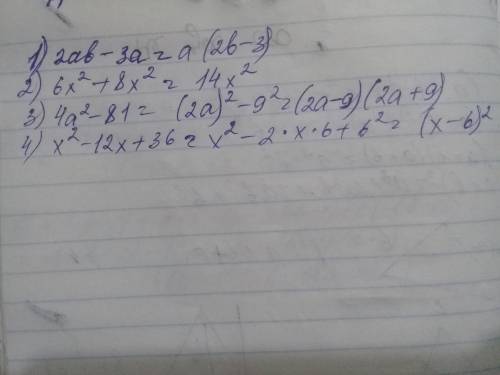 1) 2ab - 3a = a (2b - 3)
2) 6x² + 8x² = 14x²
3) 4a² - 81 = (2a)² - 9² = (2a - 9)(2a + 9)
4) x² - 12x + 36 = x² - 2 * x * 6 + 6² = (x - 6)²